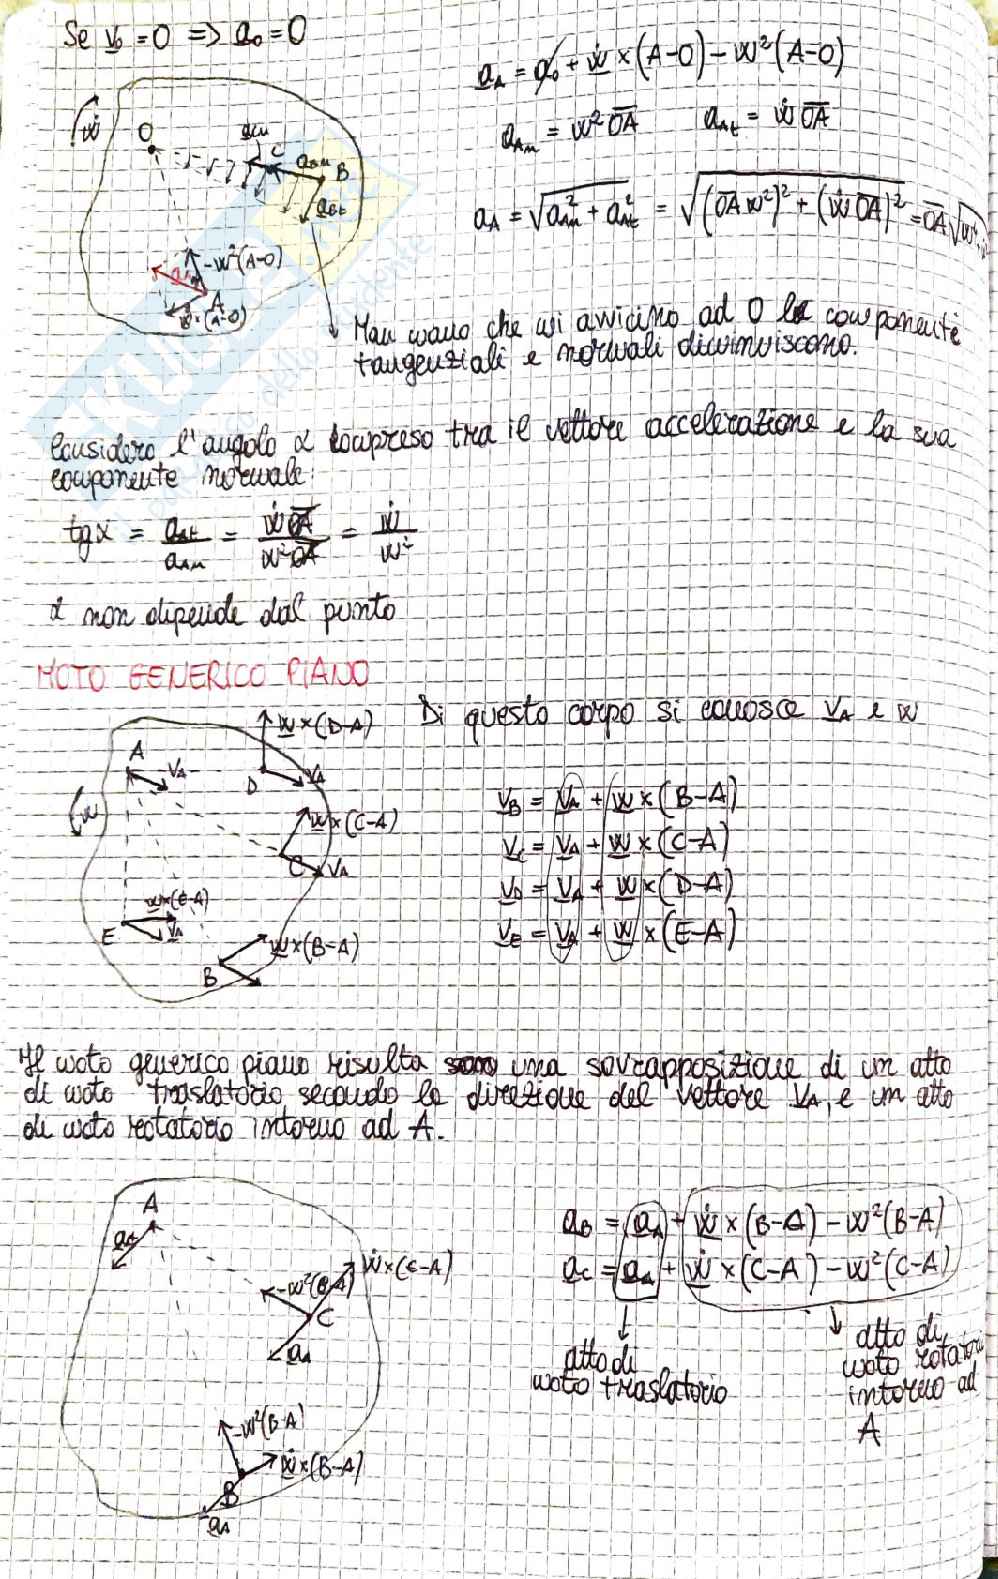 Se v₀ = 0 => a₀ = 0
a_A = a₀ + ẇ × (A-O) - w²(A-O)
a_An = w² OA   a_At = ẇ OA
a_A = √(a²_An + a²_At) = √((OA w²)² + (ẇ OA)²) = OA √
ẇ
O
C
a_Bn
B
a_Bt
-w²(A-O)
A
ẇ×(A-O)
Man mano che mi avvicino ad O le componenti
tangenziali e normali diminuiscono.
Considero l'angolo α compreso tra il vettore accelerazione e la sua
componente normale:
tgα = a_At / a_An = ẇ OA / w² OA = ẇ / w²
α non dipende dal punto
MOTO GENERICO PIANO
Di questo corpo si conosce v_A e w
A
v_A
w
w×(D-A)
D
v_A
w×(C-A)
C
v_A
w×(E-A)
E
v_A
w×(B-A)
B
v_B = v_A + w × (B-A)
v_C = v_A + w × (C-A)
v_D = v_A + w × (D-A)
v_E = v_A + w × (E-A)
Il moto generico piano risulta una sovrapposizione di un atto
di moto traslatorio secondo la direzione del vettore v_A, e un atto
di moto rotatorio intorno ad A.
A
a_A
ẇ×(C-A)
C
a_A
-w²(B-A)
ẇ×(B-A)
B
a_A
a_B = a_A + ẇ × (B-A) - w²(B-A)
a_C = a_A + ẇ × (C-A) - w²(C-A)
atto di
moto traslatorio
atto di
moto rotatorio
intorno ad
A